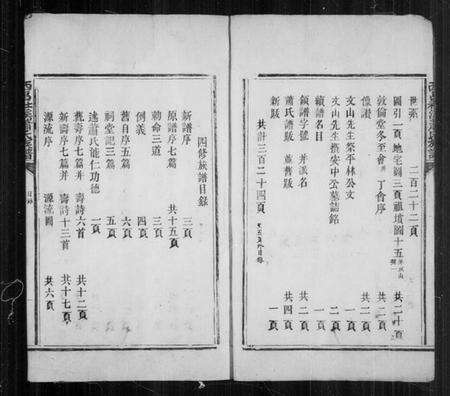 世系 二百二十二頁
圖引一頁 地宅圖三頁 祖墳圖十五頁 共二十頁
敦倫堂冬至會 丁會序 共二頁
像讚 共二頁
文山先生祭平林公文 一頁
文山先生撰安中公墓誌銘 二頁
續譜名目 二頁
領譜字號 并派名 共一頁
蕭氏譜版 并舊版 共四頁
新版 一頁
共計三百二十四頁
四修族譜目錄
新譜序 三頁
原譜序七篇 共十五頁
勅命三道 三頁
例義 四頁
舊自序五篇 六頁
祠堂記三篇 五頁
述蕭氏能仁功德 一頁
舊壽序七篇并 壽詩六首 共十二頁
新壽序七篇并 壽詩十三首 共十七頁
源流序 源流圖 共六頁
目錄